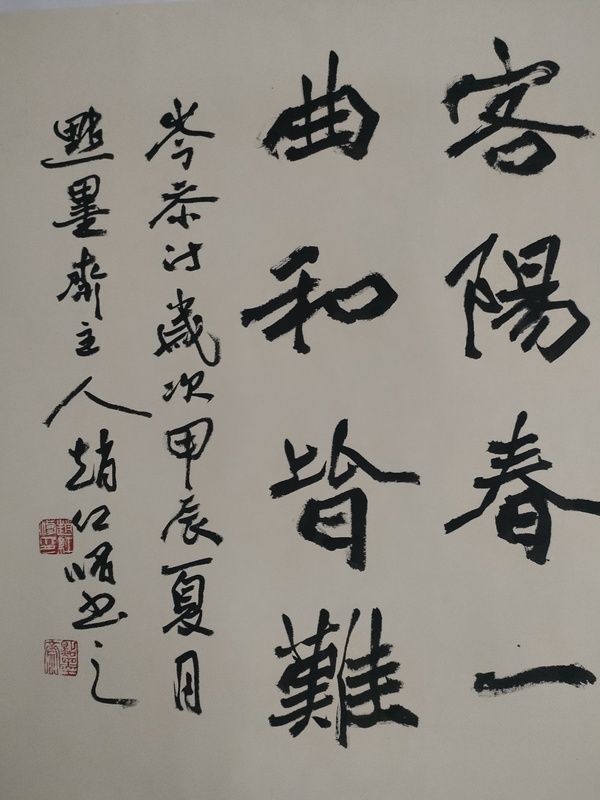 客陽春一
曲和皆難
岑參詩歲次甲辰夏月
點墨齋主人趙仁書之